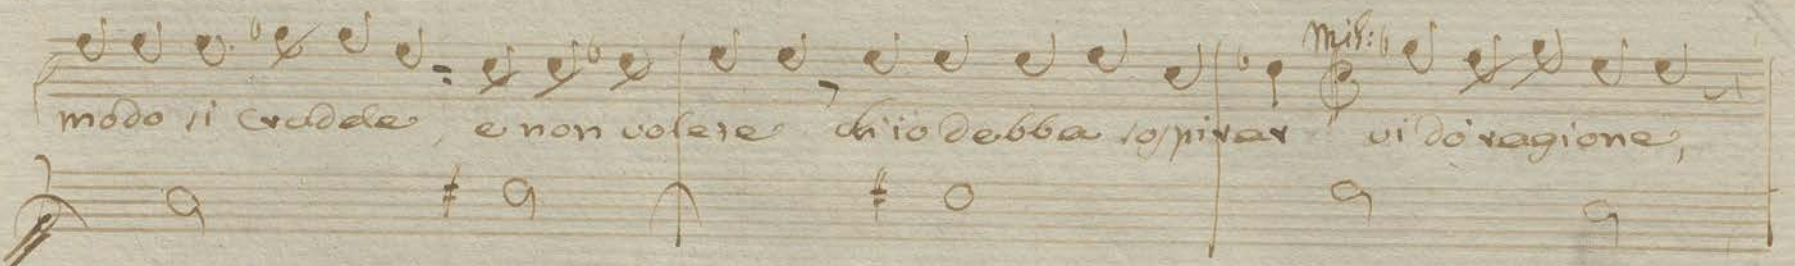 Mil:
modo si crudele e non volere ch'io debba sospirar vi dò ragione,